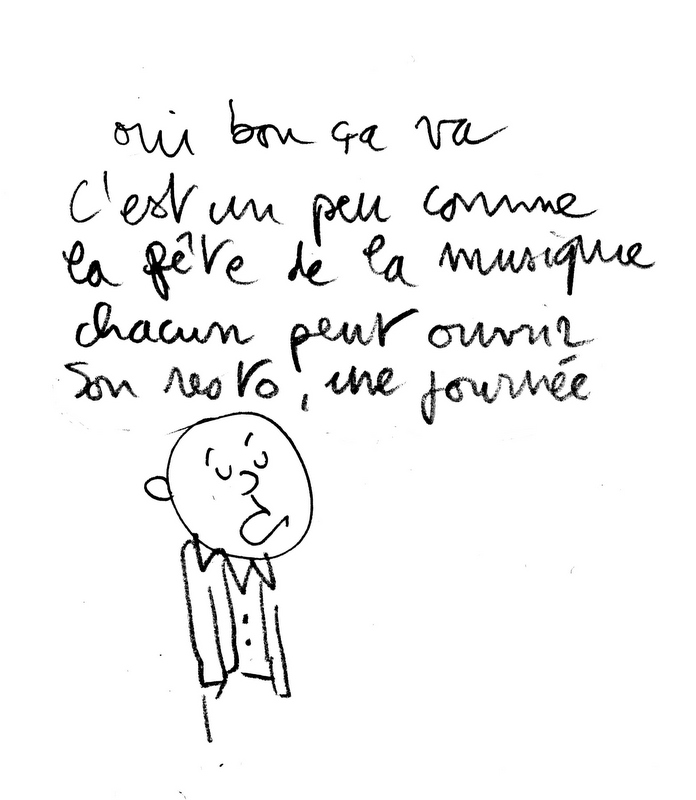 oui bon ça va
c'est un peu comme
la fête de la musique
chacun peut ouvrir
son resto, une journée